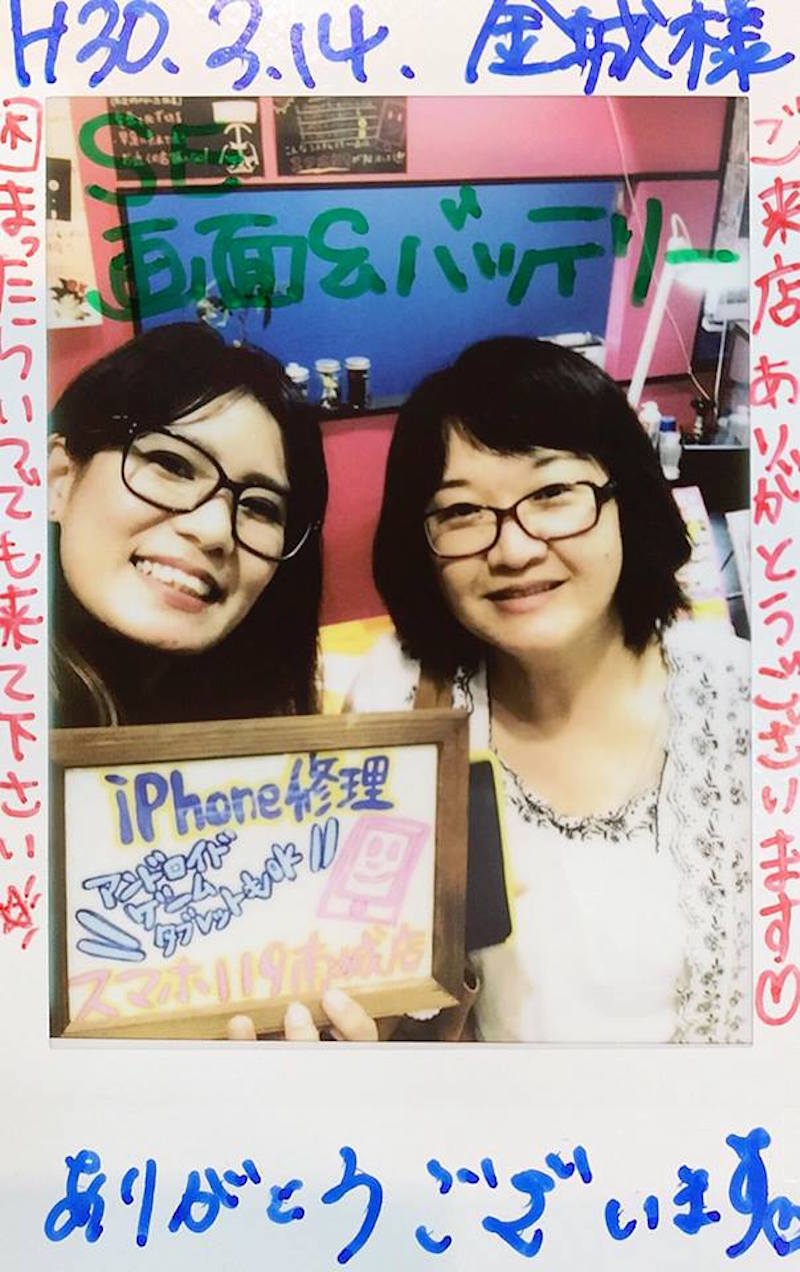 H30.3.14. 金城様
SE
画面&バッテリー
ご来店ありがとうございます♡
困まったらいつでも来て下さい☆
iPhone修理
アンドロイド
ゲーム
タブレットもOK
スマホ119南城店
ありがとうございます